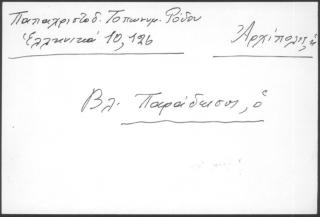 Παπαχριστοδ. Τοπωνυμ. Ρόδου
Ἑλληνικά 10, 126
Ἀρχίπολη, ἡ
Βλ. Παράδεισος, ὁ